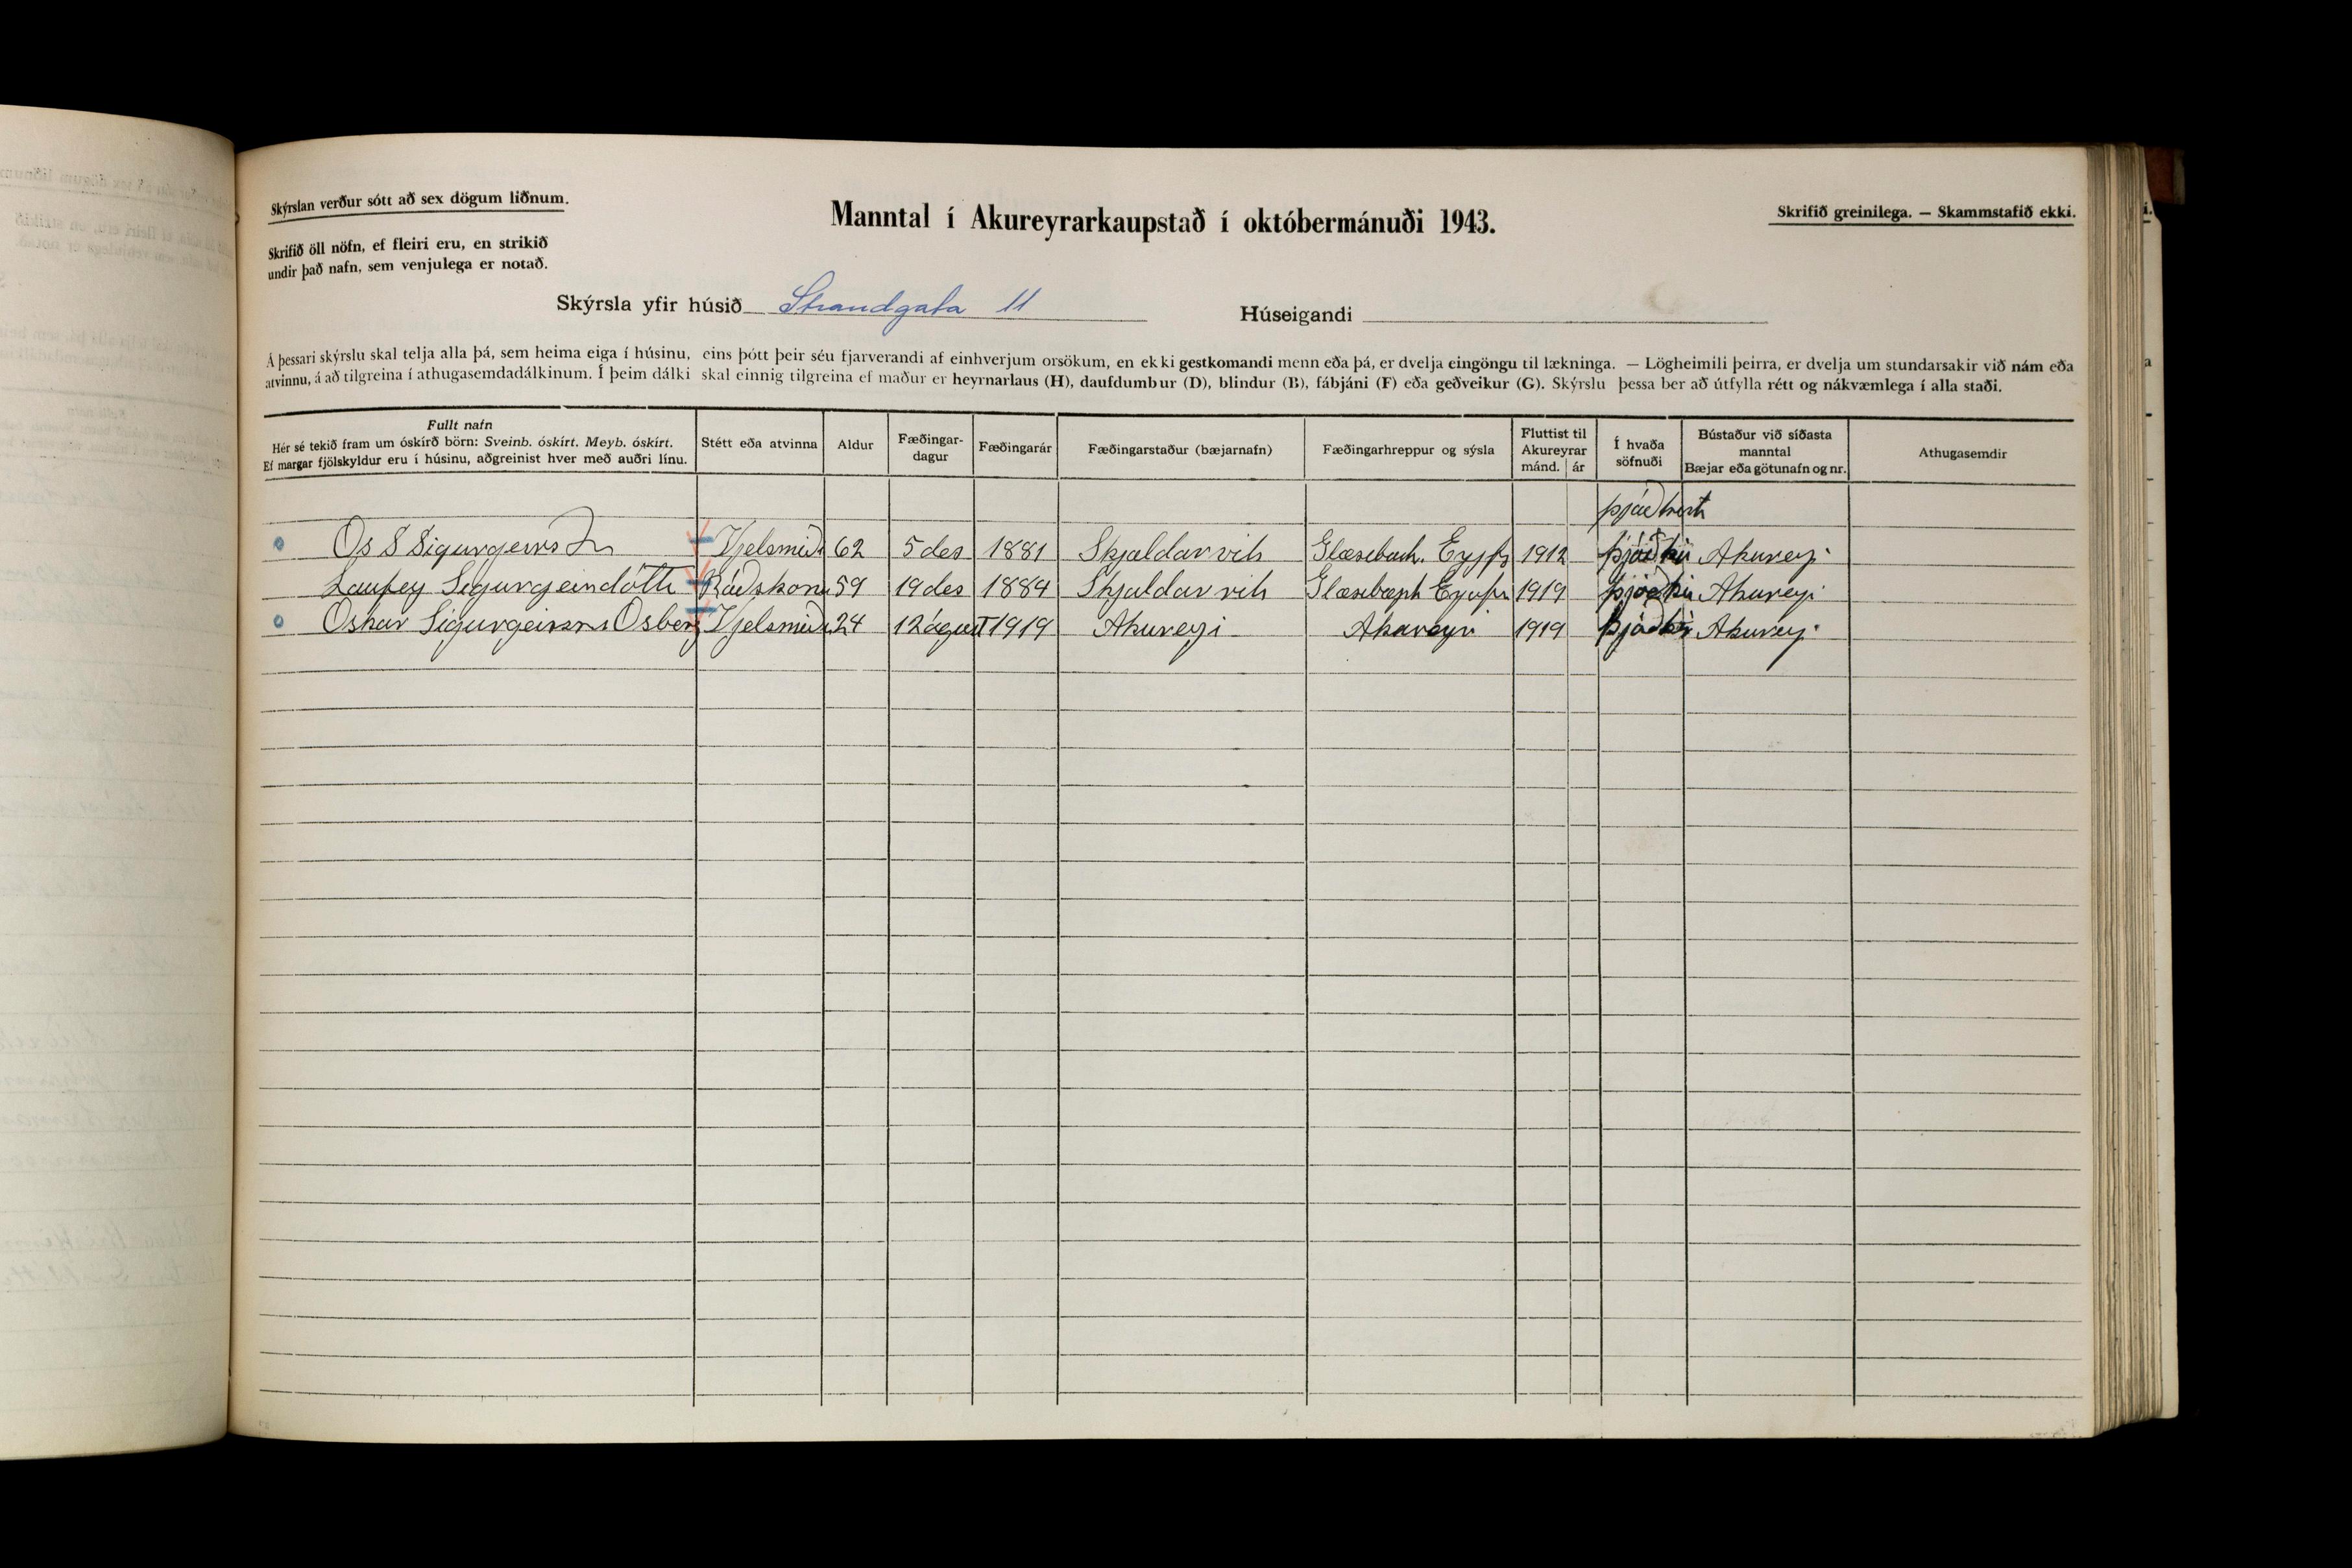 Skýrslan verður sótt að sex dögum liðnum.
Manntal í Akureyrarkaupstað í októbermánuði 1943.
Skrifið greinilega. — Skammstafið ekki.
Skrifið öll nöfn, ef fleiri eru, en strikið
undir það nafn, sem venjulega er notað.
Skýrsla yfir húsið Strandgata 11 Húseigandi
Á þessari skýrslu skal telja alla þá, sem heima eiga í húsinu, eins þótt þeir séu fjarverandi af einhverjum orsökum, en ekki gestkomandi menn eða þá, er dvelja eingöngu til lækninga. — Lögheimili þeirra, er dvelja um stundarsakir við nám eða
atvinnu, á að tilgreina í athugasemdadálkinum. Í þeim dálki skal einnig tilgreina ef maður er heyrnarlaus (H), daufdumbur (D), blindur (B), fábjáni (F) eða geðveikur (G). Skýrslu þessa ber að útfylla rétt og nákvæmlega í alla staði.
Fullt nafn
Hér sé tekið fram um óskírð börn: Sveinb. óskírt. Meyb. óskírt.
Ef margar fjölskyldur eru í húsinu, aðgreinist hver með auðri línu.
Stétt eða atvinna
Aldur
Fæðingar-
dagur
Fæðingarár
Fæðingarstaður (bæjarnafn)
Fæðingarhreppur og sýsla
Fluttist til
Akureyrar
mánd. ár
Í hvaða
söfnuði
Bústaður við síðasta
manntal
Bæjar eða götunafn og nr.
Athugasemdir
Os S Sigurgeirs 62 5 des 1881 Skjaldarvik 1912 Akureyi
Laufey Sigurgeirdóttir Ráðskona 59 19 des 1884 Skjaldarvik 1919 Akureyi
Oskar Sigurgeirsson Osberg 24 12 águst 1919 Akureyi Akureyri 1919 Akureyi